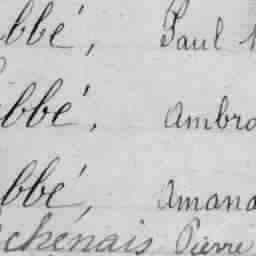 bbé, Paul
bbé, Ambro
bbé, Amand
chénais Pierre